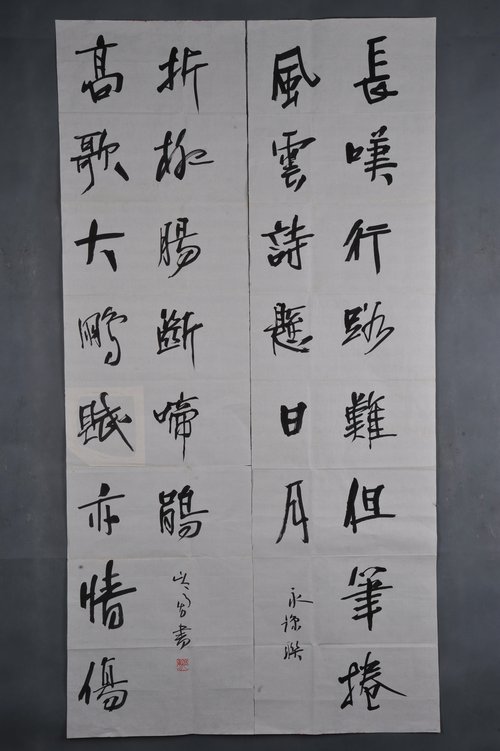 長嘆行路難但筆捲
風雲詩懸日月
永 聯
高歌大鵬賦亦情傷
折柳腸斷啼鵑
書